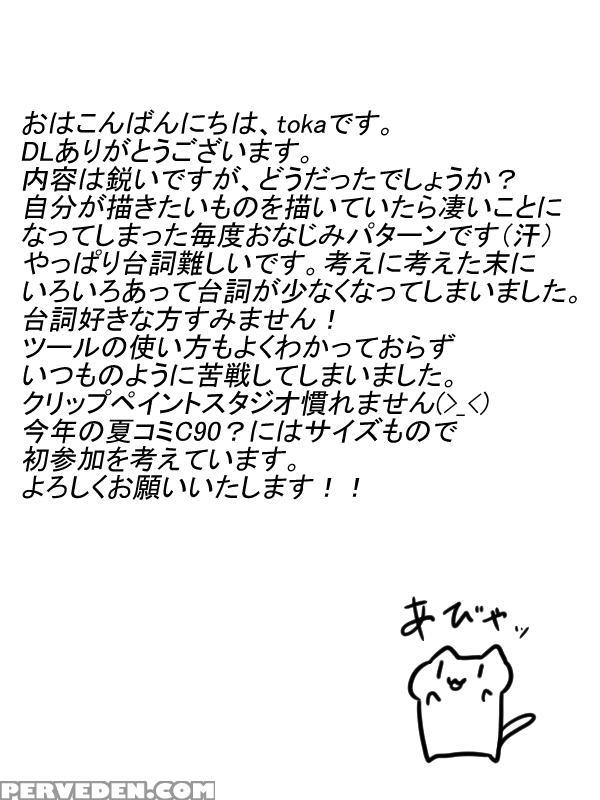 おはこんばんにちは、tokaです。
DLありがとうございます。
内容は鋭いですが、どうだったでしょうか？
自分が描きたいものを描いていたら凄いことに
なってしまった毎度おなじみパターンです（汗）
やっぱり台詞難しいです。考えに考えた末に
いろいろあって台詞が少なくなってしまいました。
台詞好きな方すみません！
ツールの使い方もよくわかっておらず
いつものように苦戦してしまいました。
クリップペイントスタジオ慣れません(>_<)
今年の夏コミC90？にはサイズもので
初参加を考えています。
よろしくお願いいたします！！
あびゃッ
PERVEDEN.COM